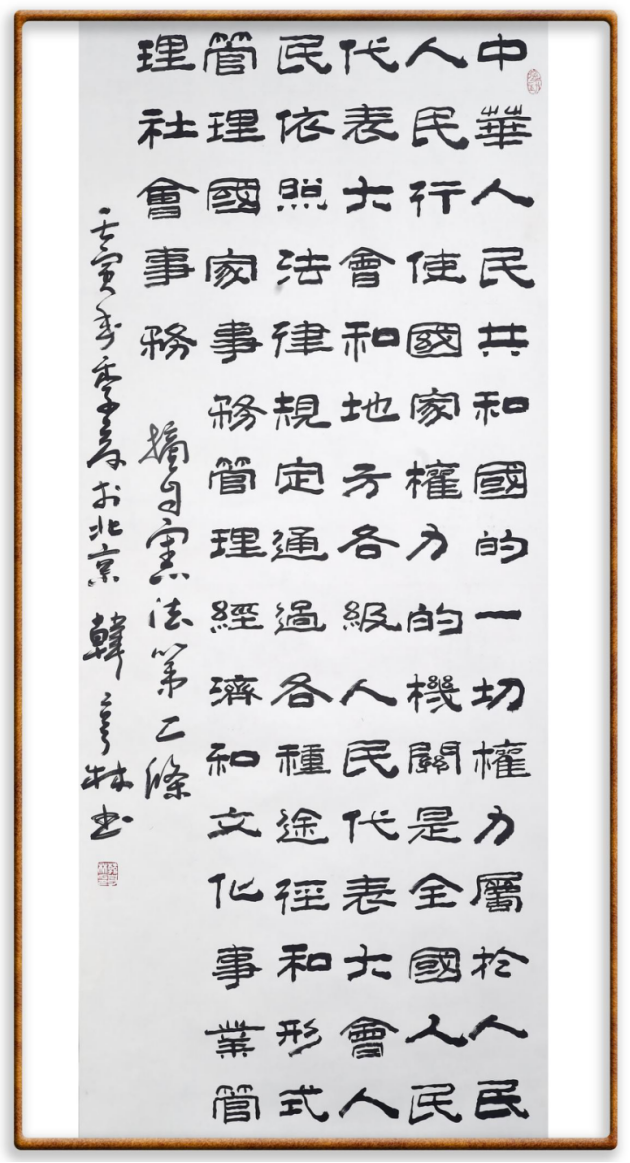 中華人民共和國的一切權力屬於人民
人民行使國家權力的機關是全國人民
代表大會和地方各級人民代表大會人
民依照法律規定通過各種途徑和形式
管理國家事務管理經濟和文化事業管
理社會事務
摘自憲法第二條
壬寅年季春於北京 韓亨林书